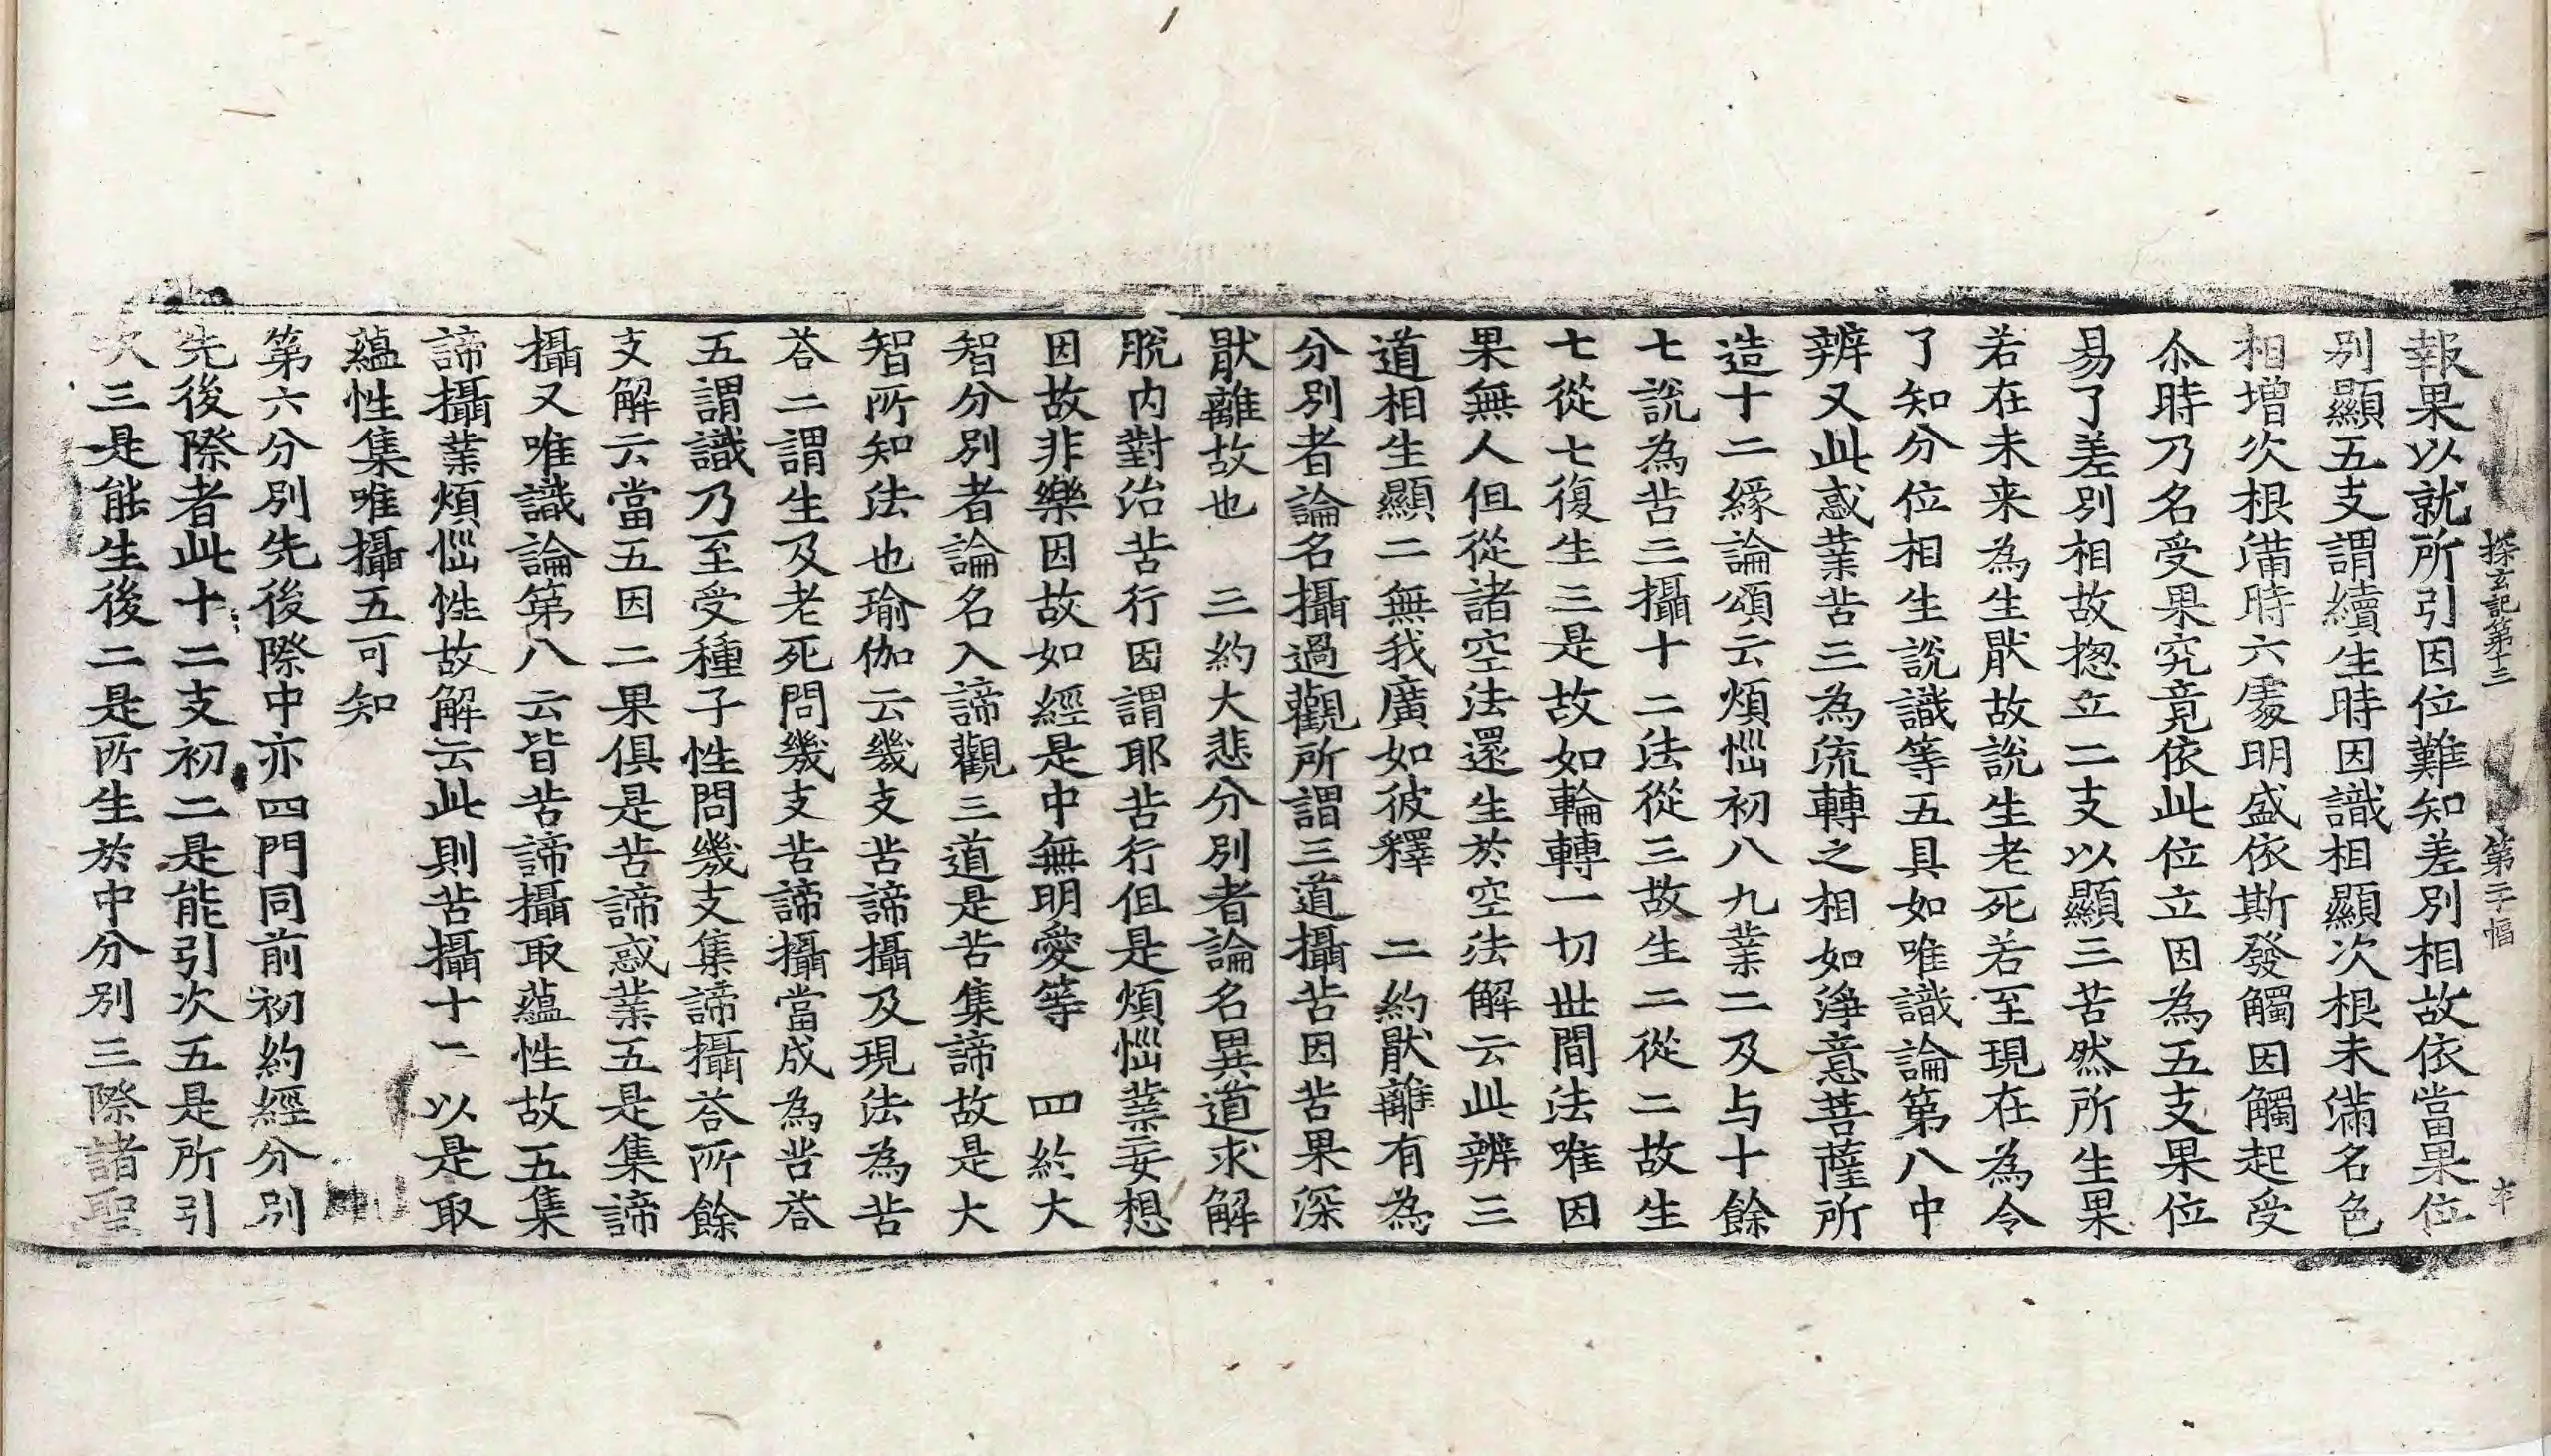 探玄記第十三 第二十幅 才
報果以就所引因位難知差別相故依當果位
別顯五支謂續生時因識相顯次根未滿名色
相增次根滿時六處明盛依斯發觸因觸起受
尒時乃名受果究竟依此位立因為五支果位
易了差別相故揔立二支以顯三苦然所生果
若在未来為生猒故說生老死若至現在為令
了知分位相生說識等五具如唯識論第八中
辨又此惑業苦三為流轉之相如淨意菩薩所
造十二緣論頌云煩惱初八九業二及与十餘
七說為苦三攝十二法從三故生二從二故生
七從七復生三是故如輪轉一切世間法唯因
果無人但從諸空法還生於空法解云此辨三
道相生顯二無我廣如彼釋　二約猒離有為
分別者論名攝過觀所謂三道攝苦因苦果深
猒離故也　三約大悲分別者論名異道求解
脫内對治苦行因謂耶苦行但是煩惱業妄想
因故非樂因故如經是中無明愛等　四約大
智分別者論名入諦觀三道是苦集諦故是大
智所知法也瑜伽云幾支苦諦攝及現法為苦
荅二謂生及老死問幾支苦諦攝當成為苦荅
五謂識乃至受種子性問幾支集諦攝荅所餘
支解云當五因二果俱是苦諦惑業五是集諦
攝又唯識論第八云皆苦諦攝取蘊性故五集
諦攝業煩惱性故解云此則苦攝十二以是取
蘊性集唯攝五可知
第六分別先後際中亦四門同前初約經分別
先後際者此十二支初二是能引次五是所引
次三是能生後二是所生於中分別三際諸聖